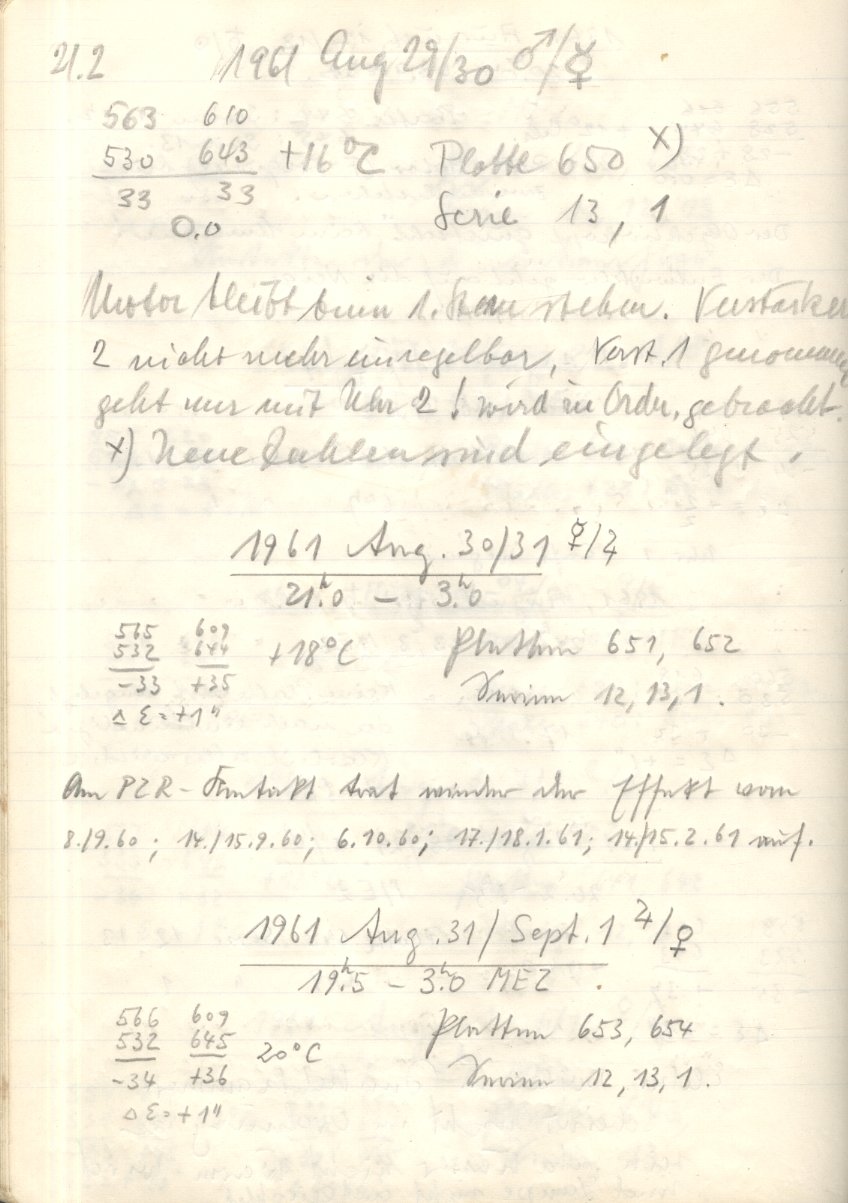 21.2 1961 Aug 29/30 ♂/☿
563 610
530 643 +16°C Platte 650 x)
33 33 Serie 13, 1
0.0
Motor bleibt beim 1. Stern stehen. Verstärker
2 nicht mehr einregelbar, Verst. 1 genommen
geht nur mit Uhr 2! wird in Ordn. gebracht.
x) Neue Zahlen sind eingelegt.
1961 Aug. 30/31 ☿/♃
21ʰ.0 – 3ʰ.0
565 609
532 644 +18°C Platten 651, 652
-33 +35 Serien 12, 13, 1.
Δ Ɛ = +1"
Am PZR-Kontakt trat wieder der Effekt vom
8./9.60; 14./15.9.60; 6.10.60; 17./18.1.61; 14./15.2.61 auf.
1961 Aug. 31/Sept. 1 ♃/♀
19ʰ.5 – 3ʰ.0 MEZ
566 609
532 645 20°C Platten 653, 654
-34 +36 Serien 12, 13, 1.
Δ Ɛ = +1"